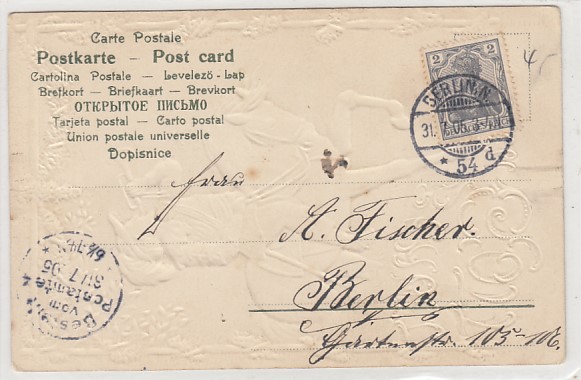 Carte Postale
Postkarte — Post card
Cartolina Postale — Levelező-Lap
Brefkort — Briefkaart — Brevkort
ОТКРЫТОЕ ПИСЬМО
Tarjeta postal — Carto postal
Union postale universelle
Dopisnice
2 2
BERLIN.N.
31.7.05.3-4N.
* 54 d
4
Frau
A. Fischer.
Berlin
Gartenstr. 105-106.
vom
Postamte 4
31/7 05